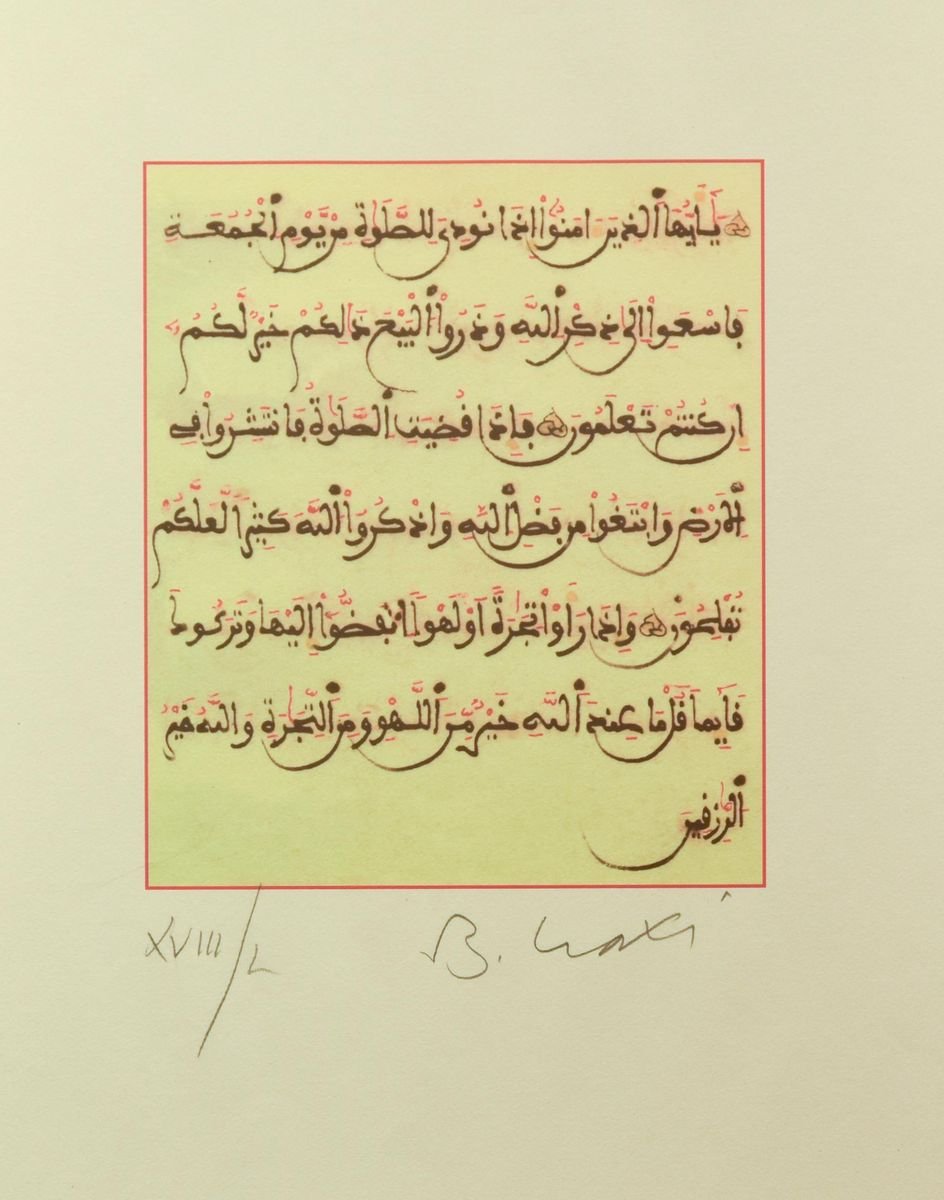 يَٰأَيُّهَا الذِينَ ءامَنُواْ إِذَا نُودِيَ لِلصَّلَوٰةِ مِنْ يَّوْمِ الْجُمُعَةِ
فَاسْعَوِاْ اِلَىٰ ذِكْرِ اللَّهِ وَذَرُواْ الْبَيْعَ ذَٰلِكُمْ خَيْرٌ لَّكُمُ
إِن كُنتُمْ تَعْلَمُونَ فَإِذَا قُضِيَتِ الصَّلَوٰةُ فَانتَشِرُواْ فِي
الَارْضِ وَابْتَغُواْ مِن فَضْلِ اللَّهِ وَاذْكُرُواْ اللَّهَ كَثِيراً لَّعَلَّكُمْ
تُفْلِحُونَ وَإِذَا رَأَوْاْ تِجَٰرَةً اَوْ لَهْواً اِنفَضُّواْ إِلَيْهَا وَتَرَكُوكَ
قَآيِماً قُلْ مَا عِندَ اللَّهِ خَيْرٌ مِّنَ اللَّهْوِ وَمِنَ التِّجَٰرَةِ وَاللَّهُ خَيْرُ
الرَّٰزِقِينَ
XVIII/L B.